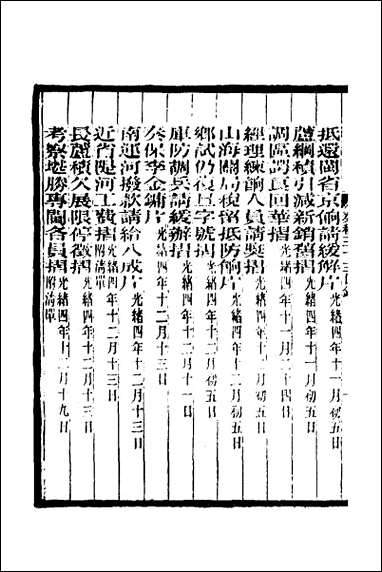 抵還閩省京餉請緩解片光緒四年十一月初五日
蘆綱積引減新銷舊摺光緒四年十一月初五日
調區諤良回華摺光緒四年十一月二十四日
經理練餉人員請獎摺光緒四年十二月初五日
山海關局稅留抵防餉片光緒四年十二月初五日
鄉試仍復旦字號摺光緒四年十二月初五日
庫防調兵請緩辦摺光緒四年十二月十一日
奏保李金鏞片光緒四年十二月十三日
南運河撥款請給八成片光緒四年十二月十三日
近省隄河工竣摺附清單光緒四年十二月十三日
長蘆積欠展限停徵摺光緒四年十二月十三日
考察堪勝專閫各員摺附清單光緒四年十二月十九日